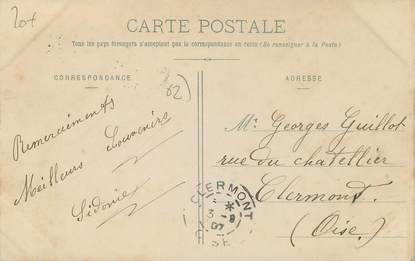 20f
CARTE POSTALE
Tous les pays étrangers n'acceptent pas la correspondance au recto (Se renseigner à la Poste)
CORRESPONDANCE
ADRESSE
82
Remerciements
Meilleurs Souvenirs
Sidonie
Mr Georges Guillot
rue du chatellier
Clermont.
(Oise.)
CLERMONT
3 - 9
07